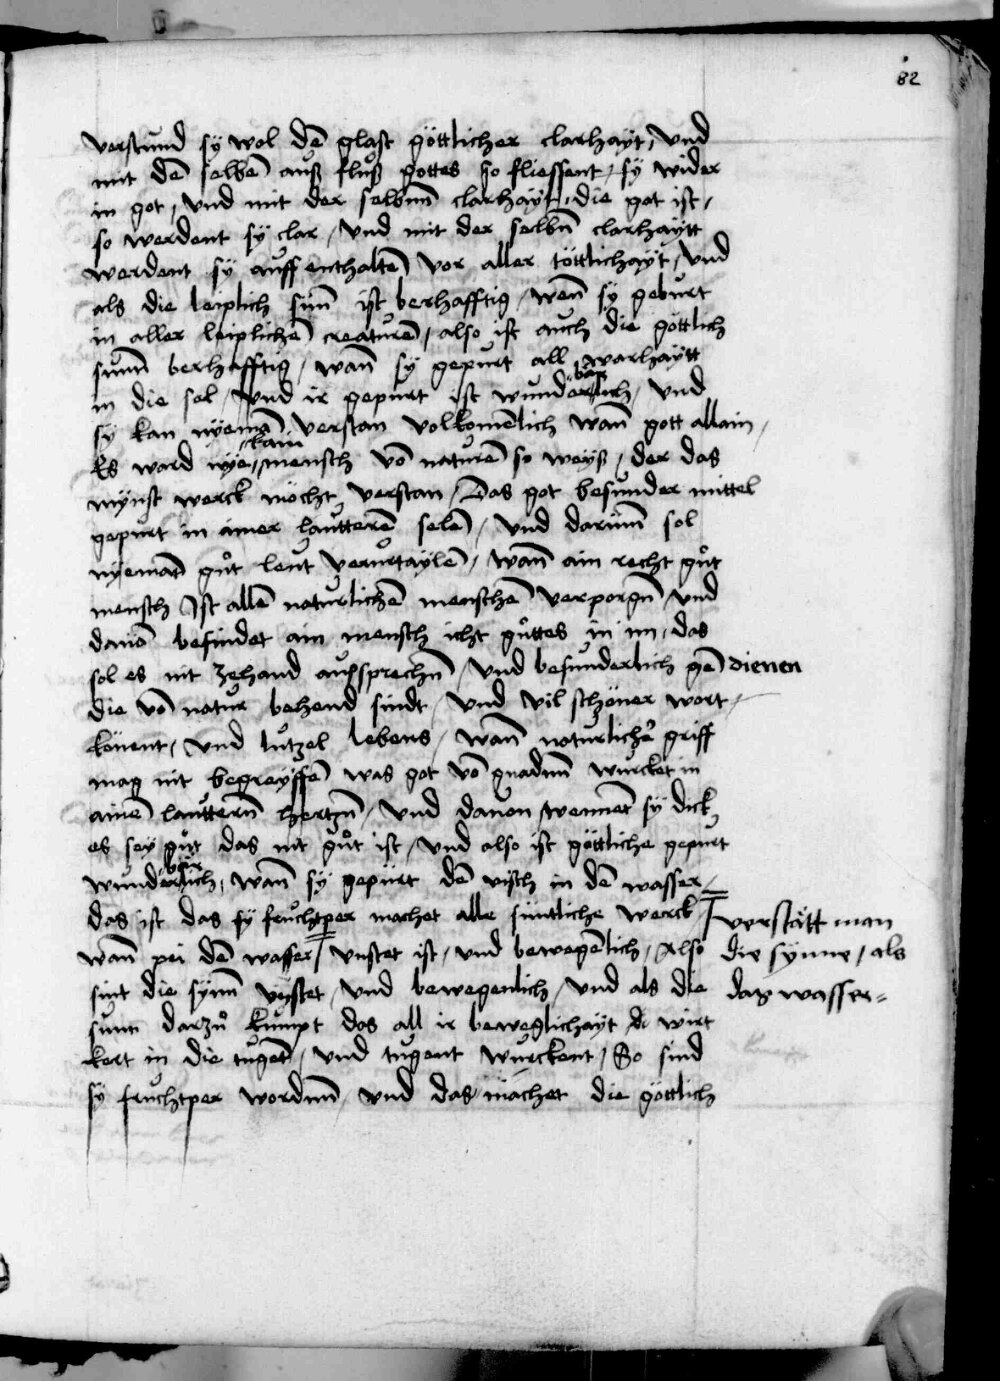 82
verstund sy wol dē glast göttlicher clarhayt, und
mit dē selbē auß fluß gottes so fliessent, sy wider
in got, und mit der selbnn clarhayt, die got ist,
so werdent sy clar, und mit der selbn clarhaytt
werdent sy auff enthaltē vor aller töttlichayt, und
als die leiplich sunn ist berhafftig, wen̄ sy geburt
in aller leiplichē creaturē, also ist auch die göttlich
sunn berhafftig, wan̄ sy gepurt all warhaytt
in die sel, und ir gepurt ist wunderbarlich, und
sy kan nyemā verstan volkomēlich wan̄ gott allain,
Es ward nye kain mensch vō naturē so weyß, der das
mynst werck möcht verstan, Das got besunder mittel
gepurt in ainer lautterē selē, und darumm sol
nyeman̄ gůt leut verurtaylē, wan̄ ain recht gůt
mensch Ist allē naturlichē menschē verporgn̄ und
dauō befindet ain mensch icht gůttes in im, das
sol es nit zehand aussprechn̄, und besunderlich gē dienen
die vō natur behend sindt, und vil schöner wort,
künent, und lützel lebens, wan̄ naturlicher griff
mag nit begreyffē was got vō gnadnn wurcket in
ainē lauttern̄ hertzn̄, und dauon wennet sy dick
es sey gůt das nit gůt ist, und also ist göttliche gepurt
wunderbarlich, wan̄ sy gepürt dē visch in dē wasser,
das ist das sy fruchtper machet alle sinntliche werck
wan̄ pei dē wasser, verstätt man die synne, als das wasser
unstet ist, und bewegēlich, Also
sint die synn unstet, und bewegenlich, und als die
sunn darzů kumpt das all ir beweglichayt wirt
kert in die tugēt, und tugent würckent, So sind
sy fruchtper wordnn, und das machet die göttlich